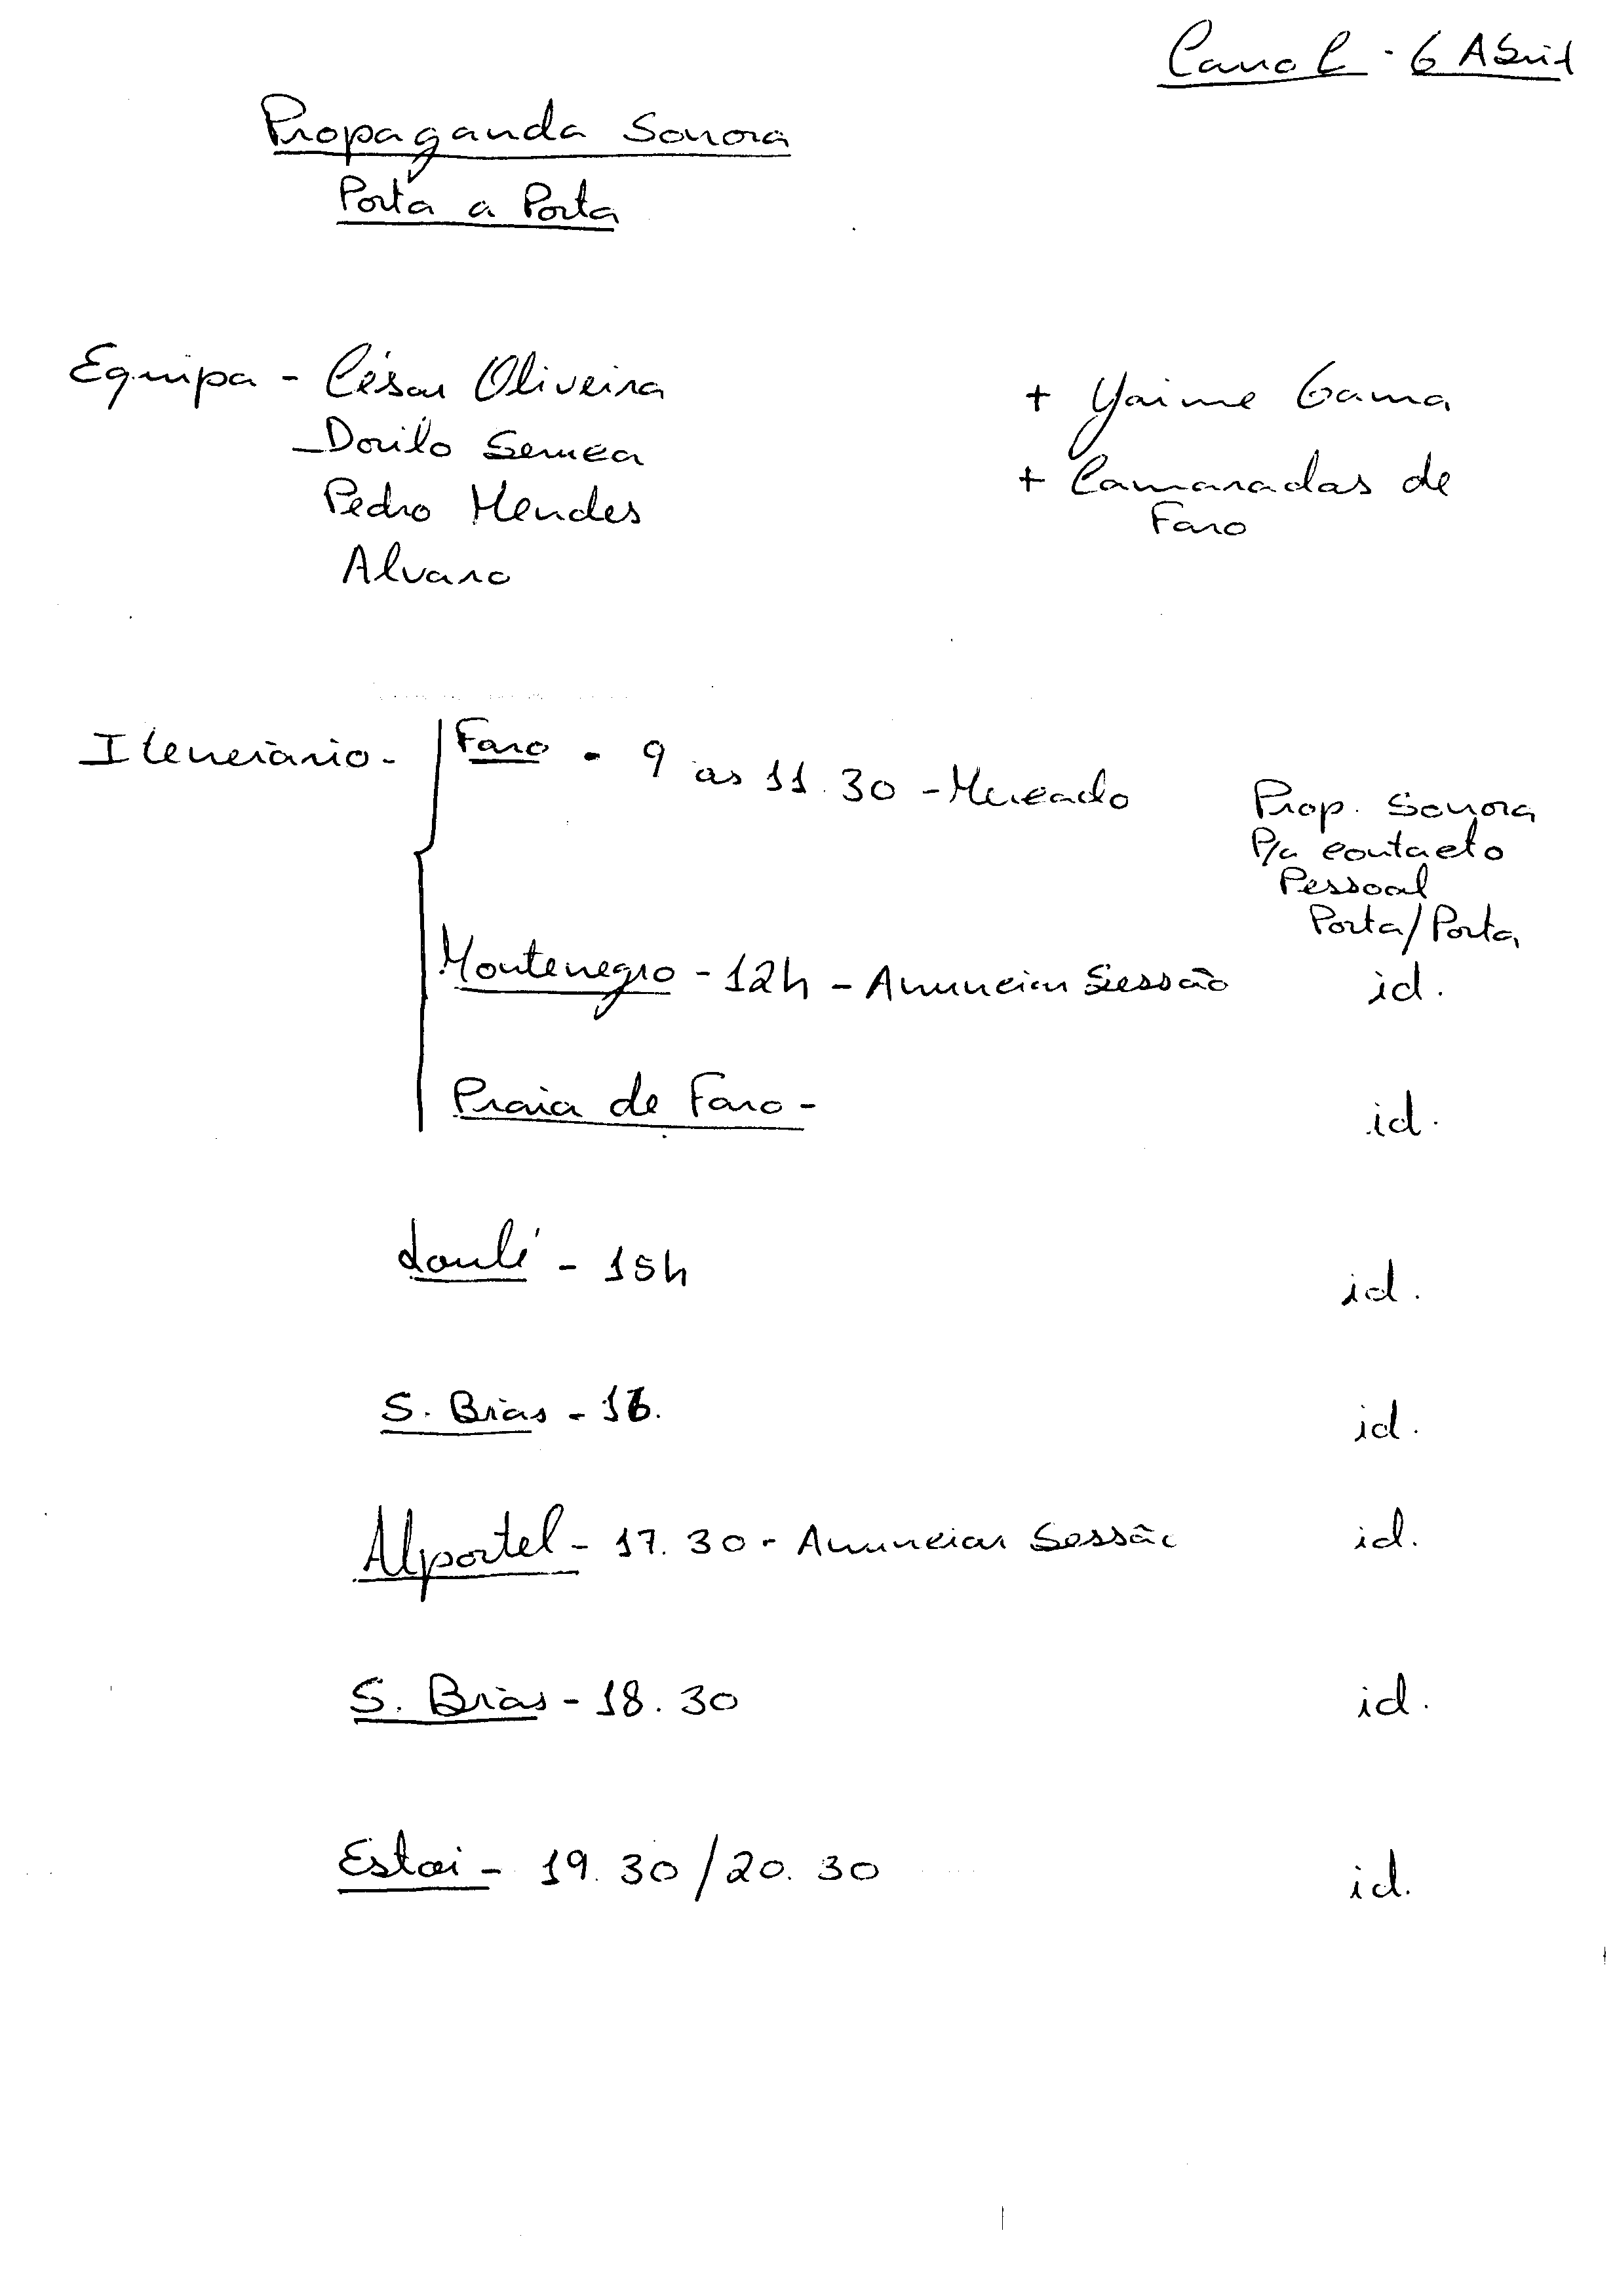 Carro C - 6 Abril
Propaganda Sonora
Porta a Porta
Equipa - César Oliveira
- Dorilo Semea
Pedro Mendes
Alvaro
+ Jaime Gama
+ Camaradas de
Faro
Itenerário -
Faro - 9 às 11.30 - Mercado
Prop. Sonora
P/a contacto
Pessoal
Porta/Porta
Montenegro - 12h - Anunciar Sessão id.
Praia de Faro - id.
Loulé - 15h id.
S. Brás - 16. id.
Alportel - 17.30 - Anunciar Sessão id.
S. Brás - 18.30 id.
Estoi - 19.30/20.30 id.